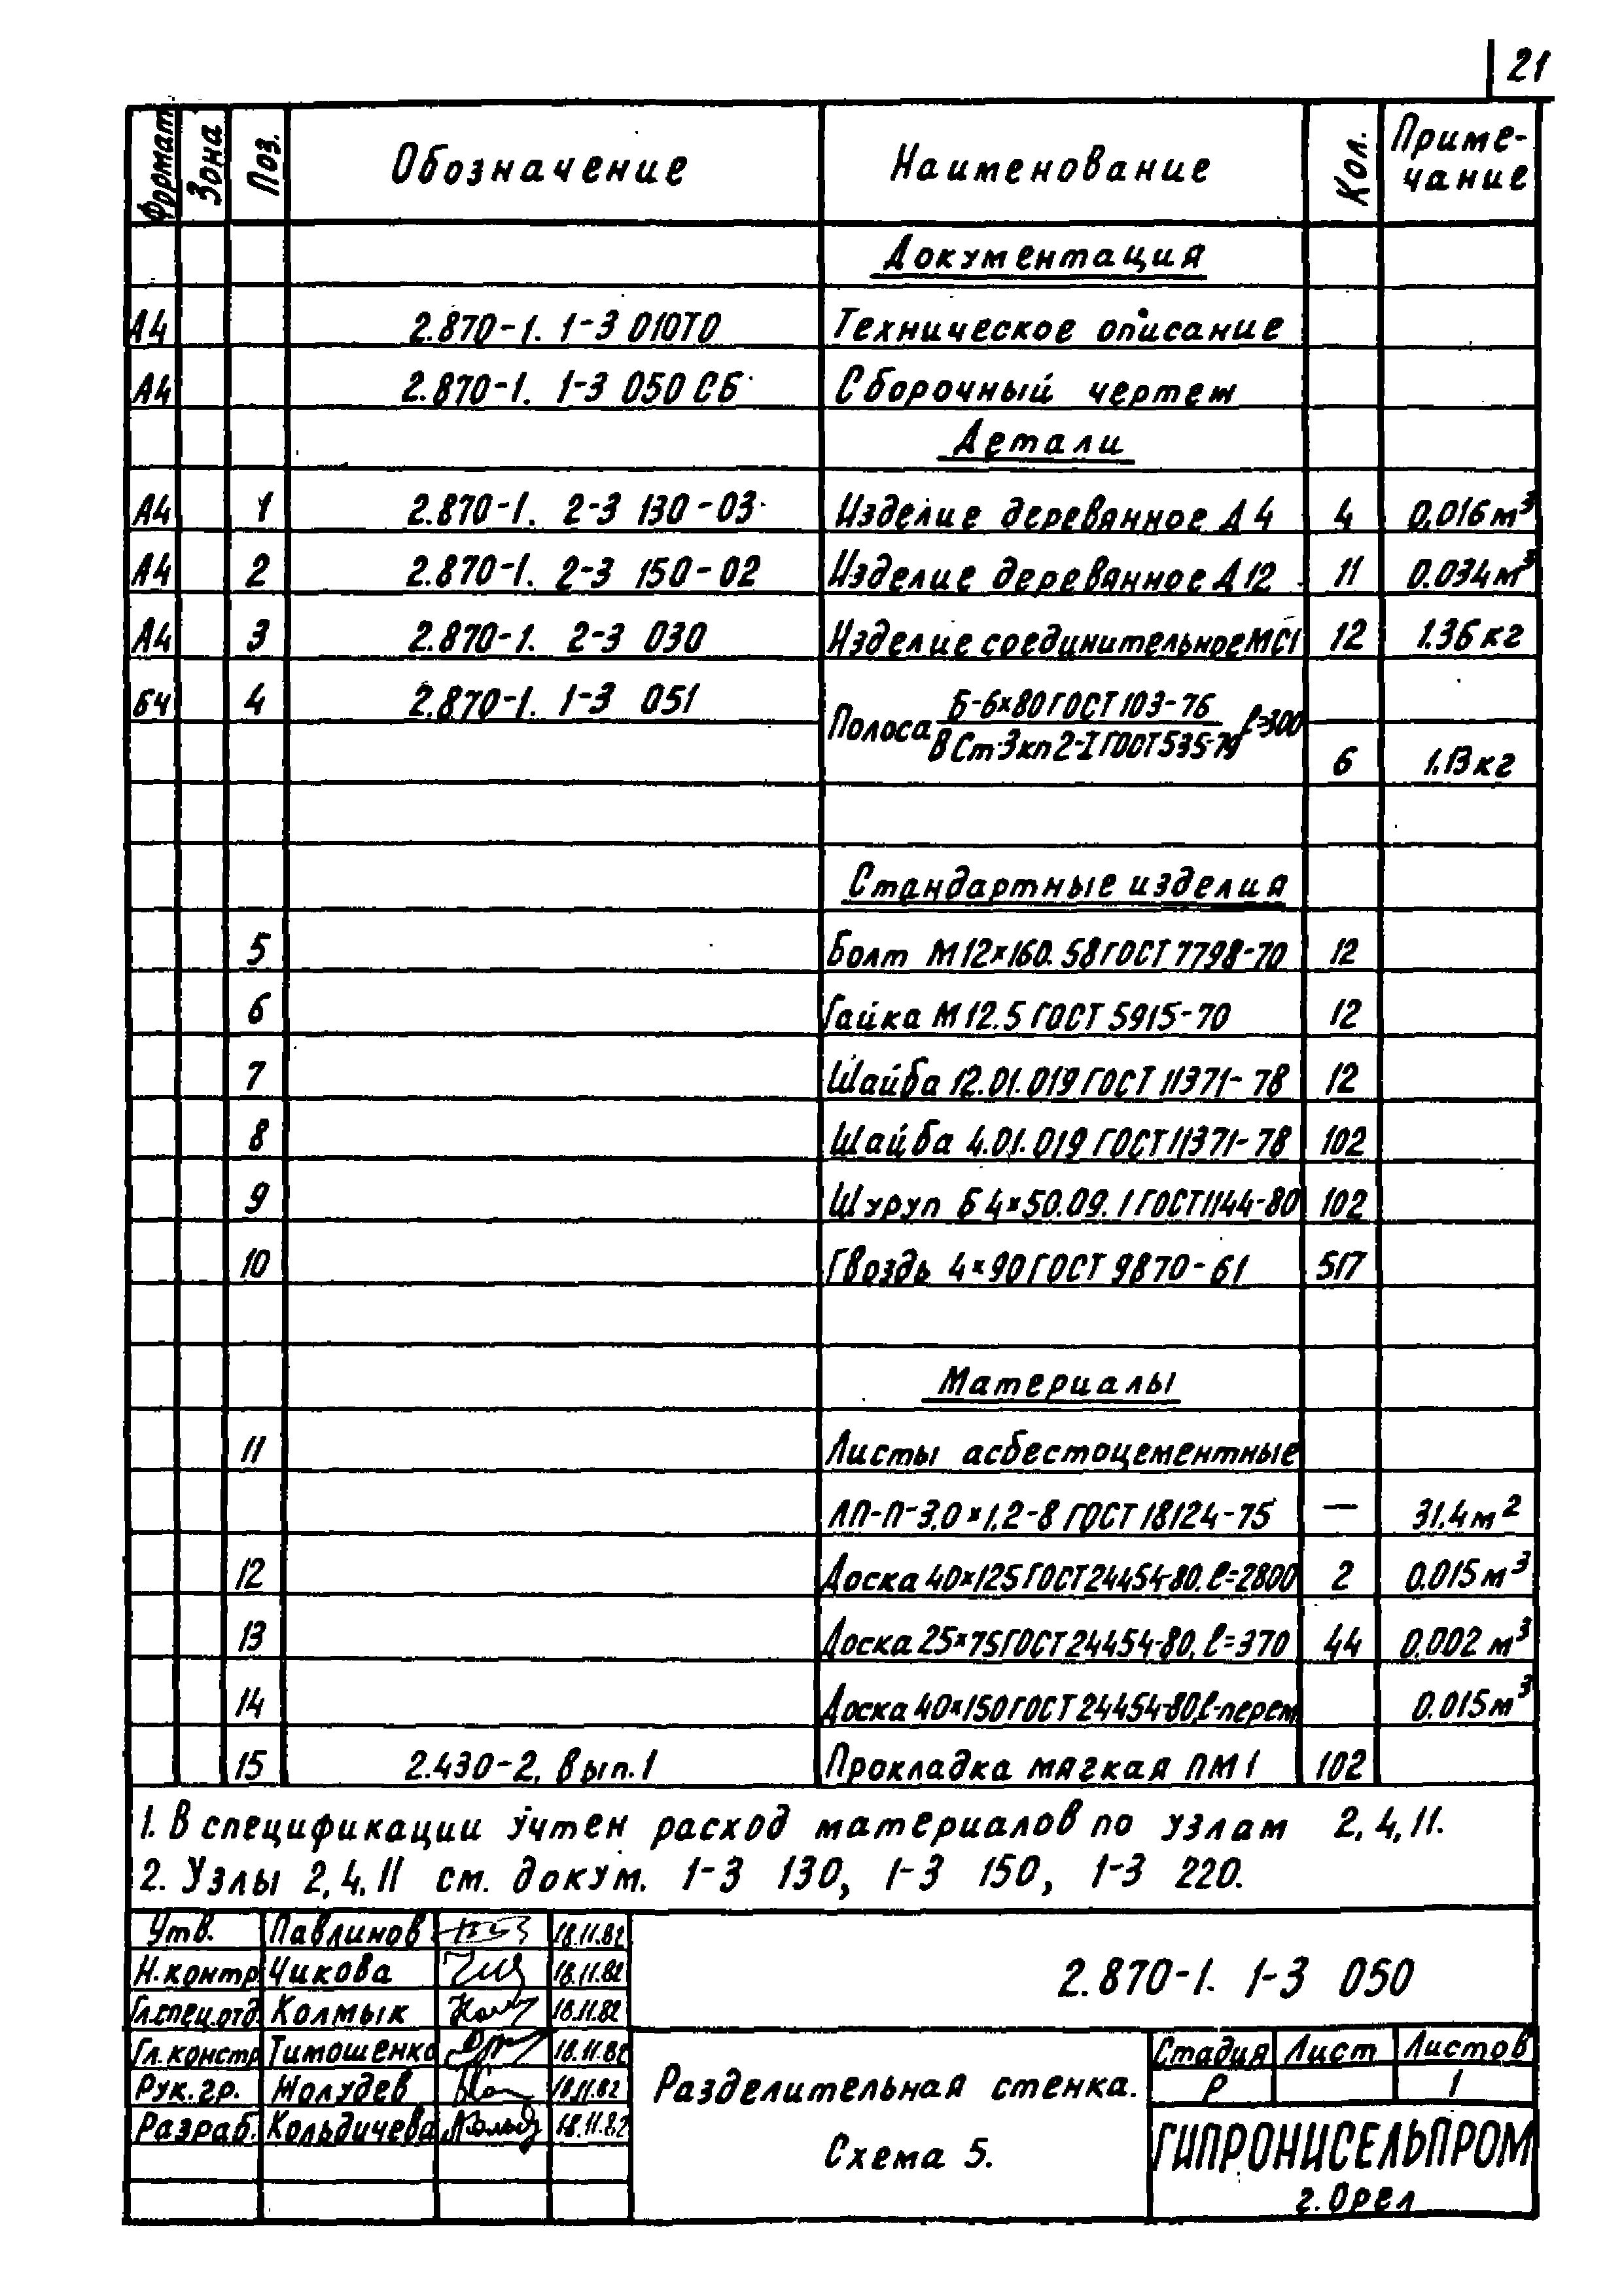 21
Формат Зона Поз. Обозначение Наименование Кол. Приме-
чание
Документация
А4 2.870-1. 1-3 010ТО Техническое описание
А4 2.870-1. 1-3 050 СБ Сборочный чертеж
Детали
А4 1 2.870-1. 2-3 130-03 Изделие деревянное Д4 4 0,016 м³
А4 2 2.870-1. 2-3 150-02 Изделие деревянное Д12 11 0.034 м³
А4 3 2.870-1. 2-3 030 Изделие соединительное МС1 12 1.36 кг
БЧ 4 2.870-1. 1-3 051 Полоса Б-6×80 ГОСТ 103-76 ℓ=300
В Ст.3кп2-I ГОСТ 535-79
6 1.13 кг
Стандартные изделия
5 Болт М12×160.58 ГОСТ 7798-70 12
6 Гайка М12.5 ГОСТ 5915-70 12
7 Шайба 12.01.019 ГОСТ 11371-78 12
8 Шайба 4.01.019 ГОСТ 11371-78 102
9 Шуруп Б4×50.09.1 ГОСТ 1144-80 102
10 Гвоздь 4×90 ГОСТ 9870-61 517
Материалы
11 Листы асбестоцементные
ЛП-П-3.0×1.2-8 ГОСТ 18124-75 — 31.4 м²
12 Доска 40×125 ГОСТ 24454-80. ℓ=2800 2 0.015 м³
13 Доска 25×75 ГОСТ 24454-80, ℓ=370 44 0.002 м³
14 Доска 40×150 ГОСТ 24454-80, ℓ-перем 0.015 м³
15 2.430-2, вып.1 Прокладка мягкая ПМ1 102
1. В спецификации учтен расход материалов по узлам 2, 4, 11.
2. Узлы 2, 4, 11 см. докум. 1-3 130, 1-3 150, 1-3 220.
Утв. Павлинов 18.11.82
Н.контр Чикова 18.11.82
Гл.спец.отд. Колмык 18.11.82
Гл.констр Тимошенко 18.11.82
Рук.гр. Жолудев 18.11.82
Разраб. Кольдичева 18.11.82
2.870-1. 1-3 050
Разделительная стенка.
Схема 5.
Стадия Лист Листов
Р 1
ГИПРОНИСЕЛЬПРОМ
г. Орел